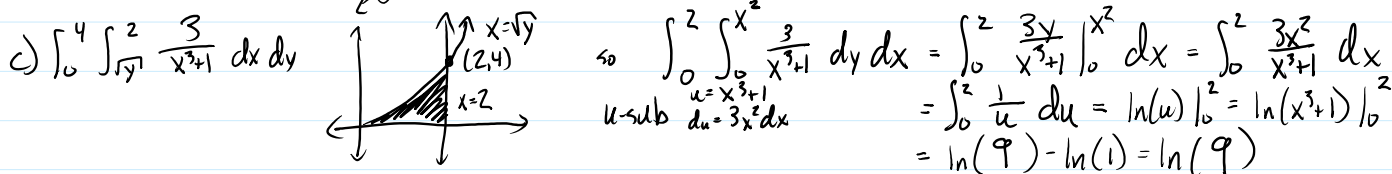 c) ∫₀⁴ ∫_√y² 3/(x³+1) dx dy
x=√y
(2,4)
x=2
so ∫₀² ∫₀^x² 3/(x³+1) dy dx = ∫₀² 3y/(x³+1) |₀^x² dx = ∫₀² 3x²/(x³+1) dx
u-sub u=x³+1
du=3x²dx
= ∫₀² 1/u du = ln(u) |₀² = ln(x³+1) |₀²
= ln(9) - ln(1) = ln(9)